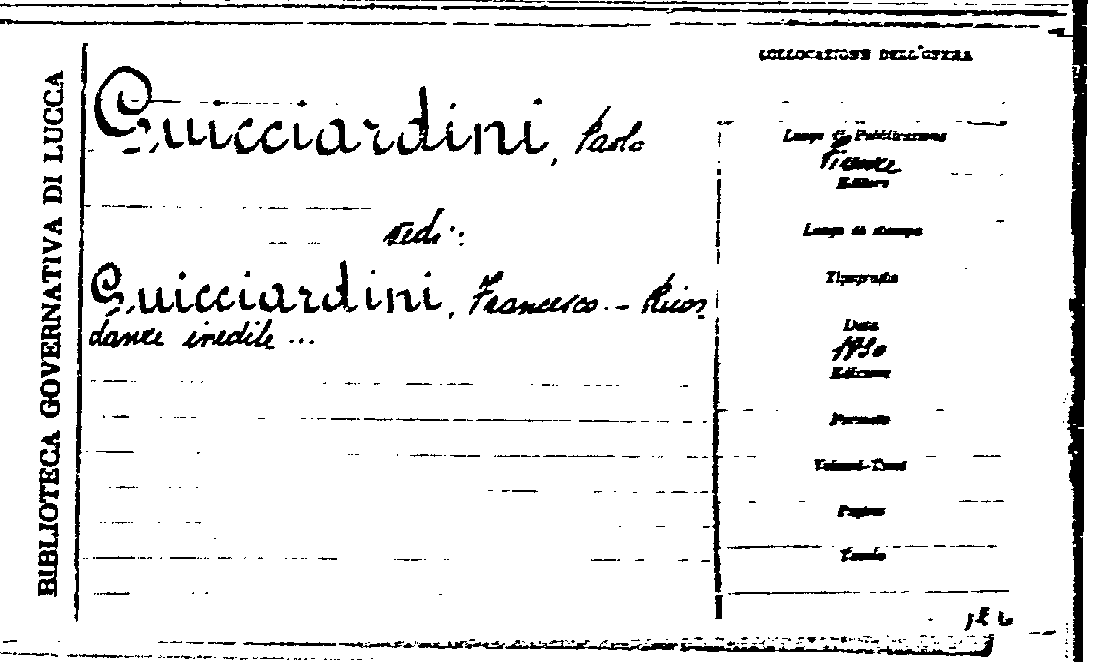 BIBLIOTECA GOVERNATIVA DI LUCCA
COLLOCAZIONE DELL'OPERA
Guicciardini, Paolo
vedi:
Guicciardini, Francesco - Ricor
danze inedite ...
Luogo di Pubblicazione
Firenze
Editore
Luogo di stampa
Tipografia
Data
1930
Edizione
Formato
Volumi-Tomi
Pagine
Tavole